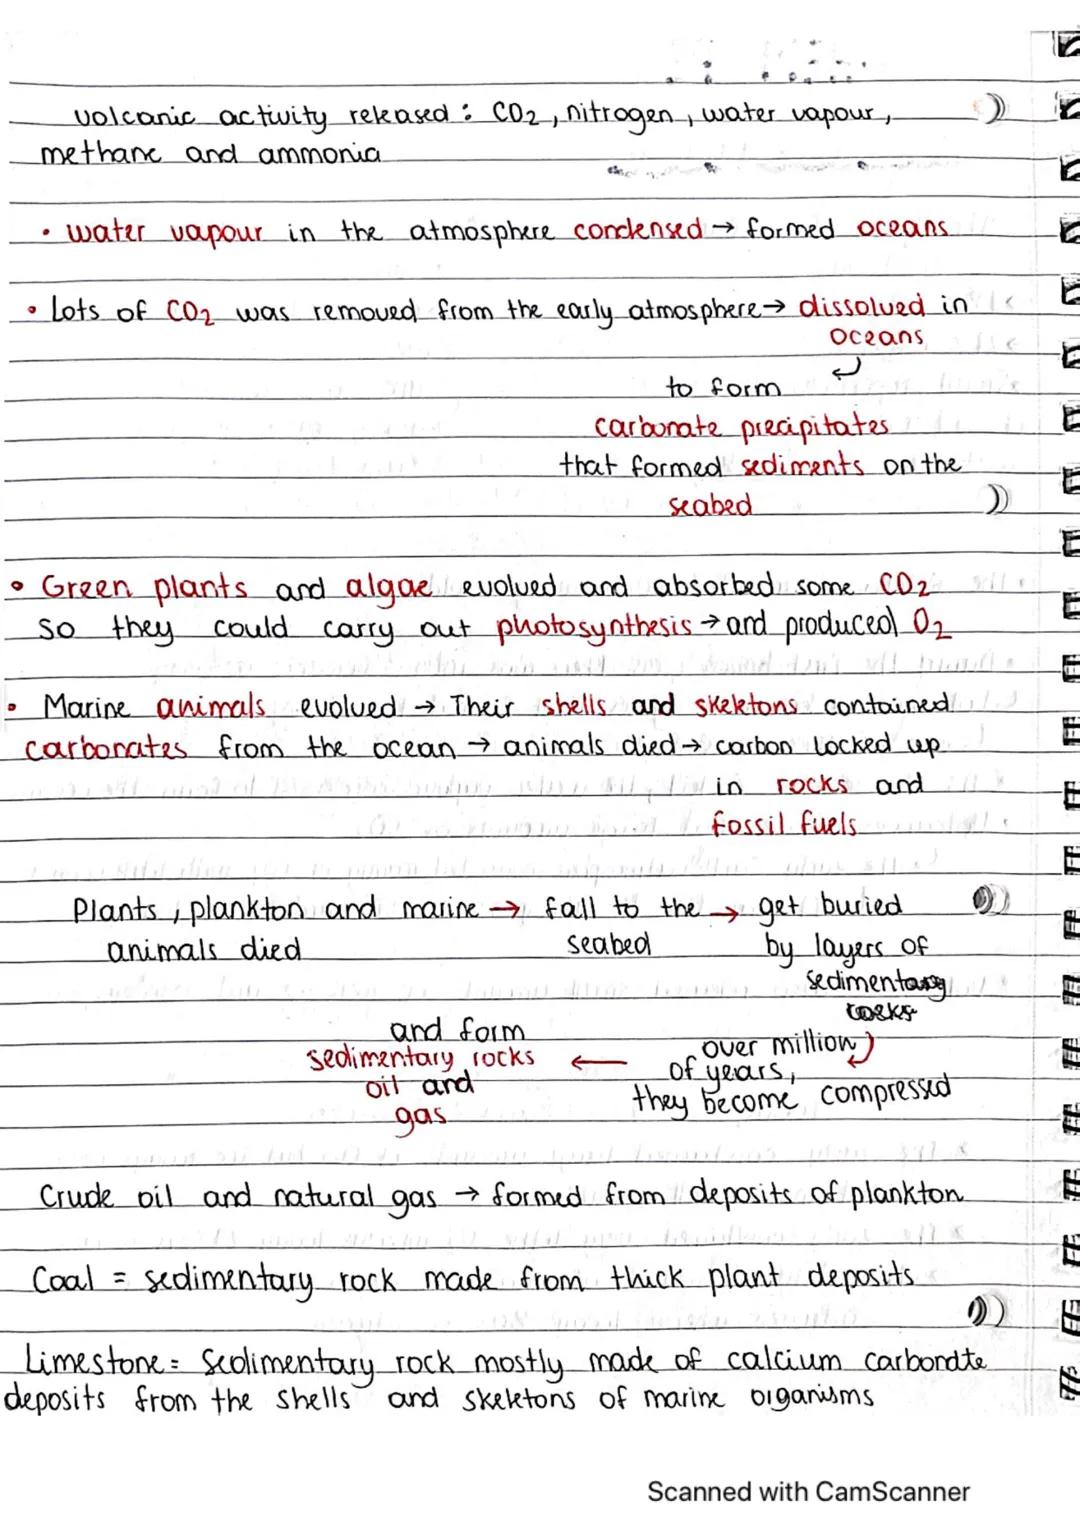 volcanic activity released : CO2, nitrogen, water vapour,
methane and ammonia
• water vapour in the atmosphere condensed → formed oceans
• Lots of CO2 was removed from the early atmosphere → dissolved in
oceans
to form
carbonate precipitates
that formed sediments on the
seabed
• Green plants and algae evolved and absorbed some CO2
so they could carry out photosynthesis → and produced O2
• Marine animals evolved → Their shells and skeletons contained
carbonates from the ocean → animals died → carbon locked up
in rocks and
fossil fuels
Plants, plankton and marine → fall to the → get buried
animals died seabed by layers of
sedimentary
rocks
over million
of years,
they become compressed
← and form
sedimentary rocks
oil and
gas
Crude oil and natural gas → formed from deposits of plankton
Coal = sedimentary rock made from thick plant deposits
Limestone = Sedimentary rock mostly made of calcium carbonate
deposits from the shells and skeletons of marine organisms
Scanned with CamScanner